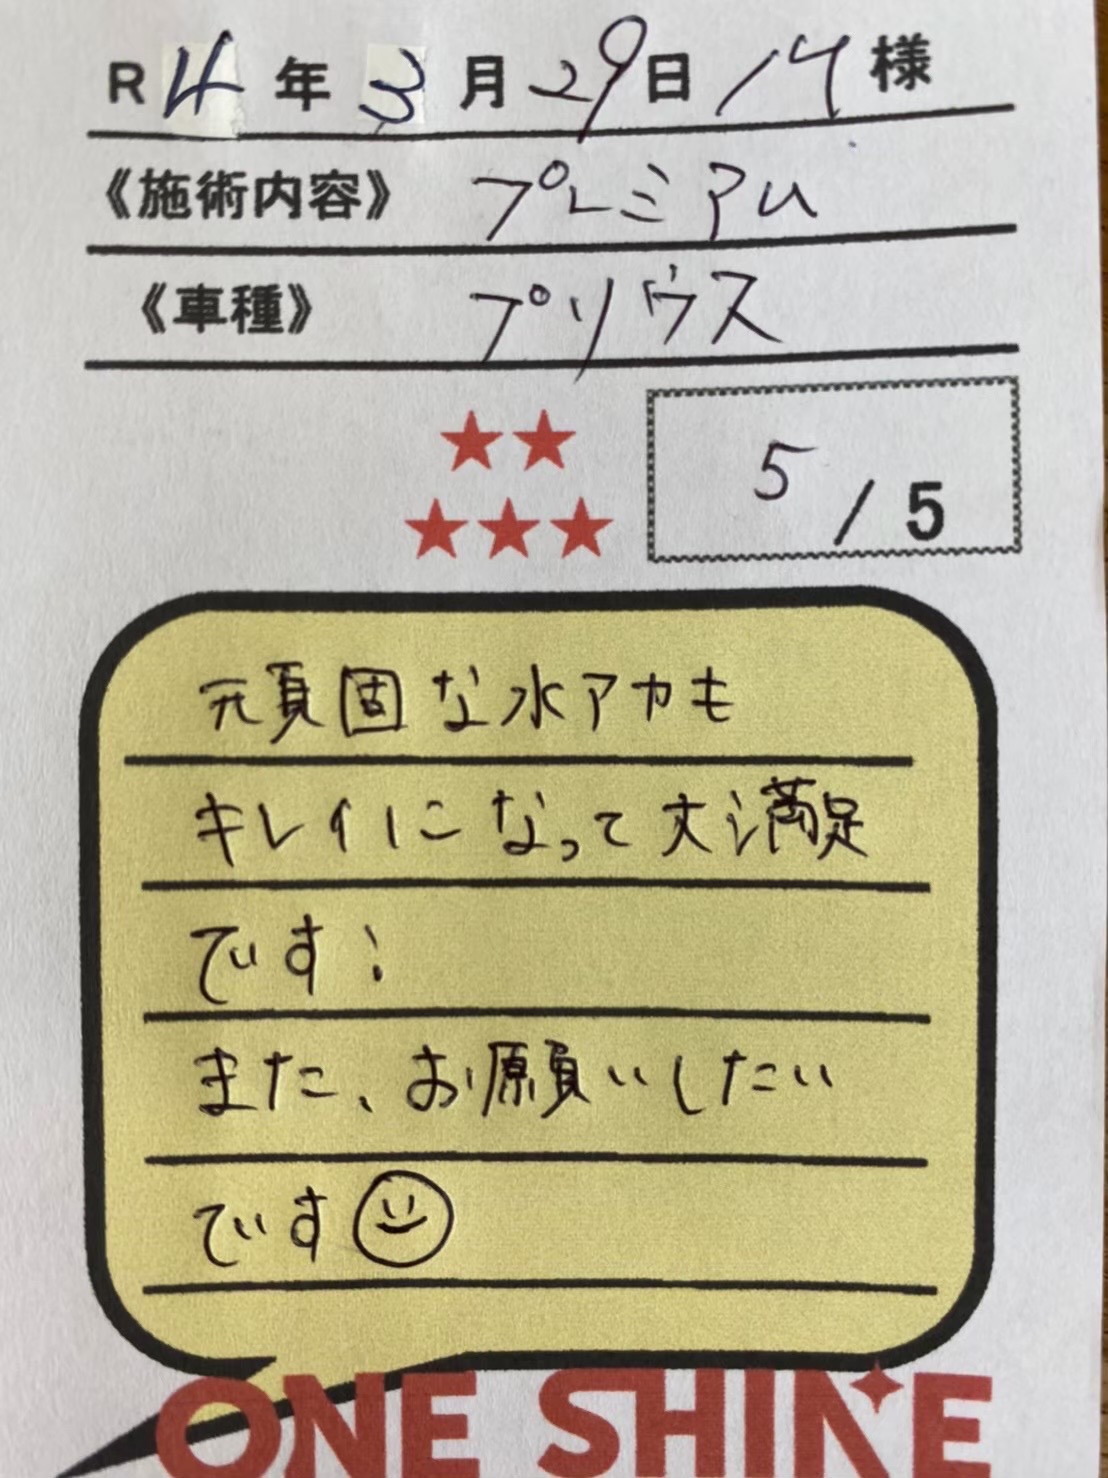 R4年3月29日 様
《施術内容》 プレミアム
《車種》 プリウス
★★
★★★
5/5
頑固な水アカも
キレイになって大満足
です!
また、お願いしたい
です☺
ONE SHINE